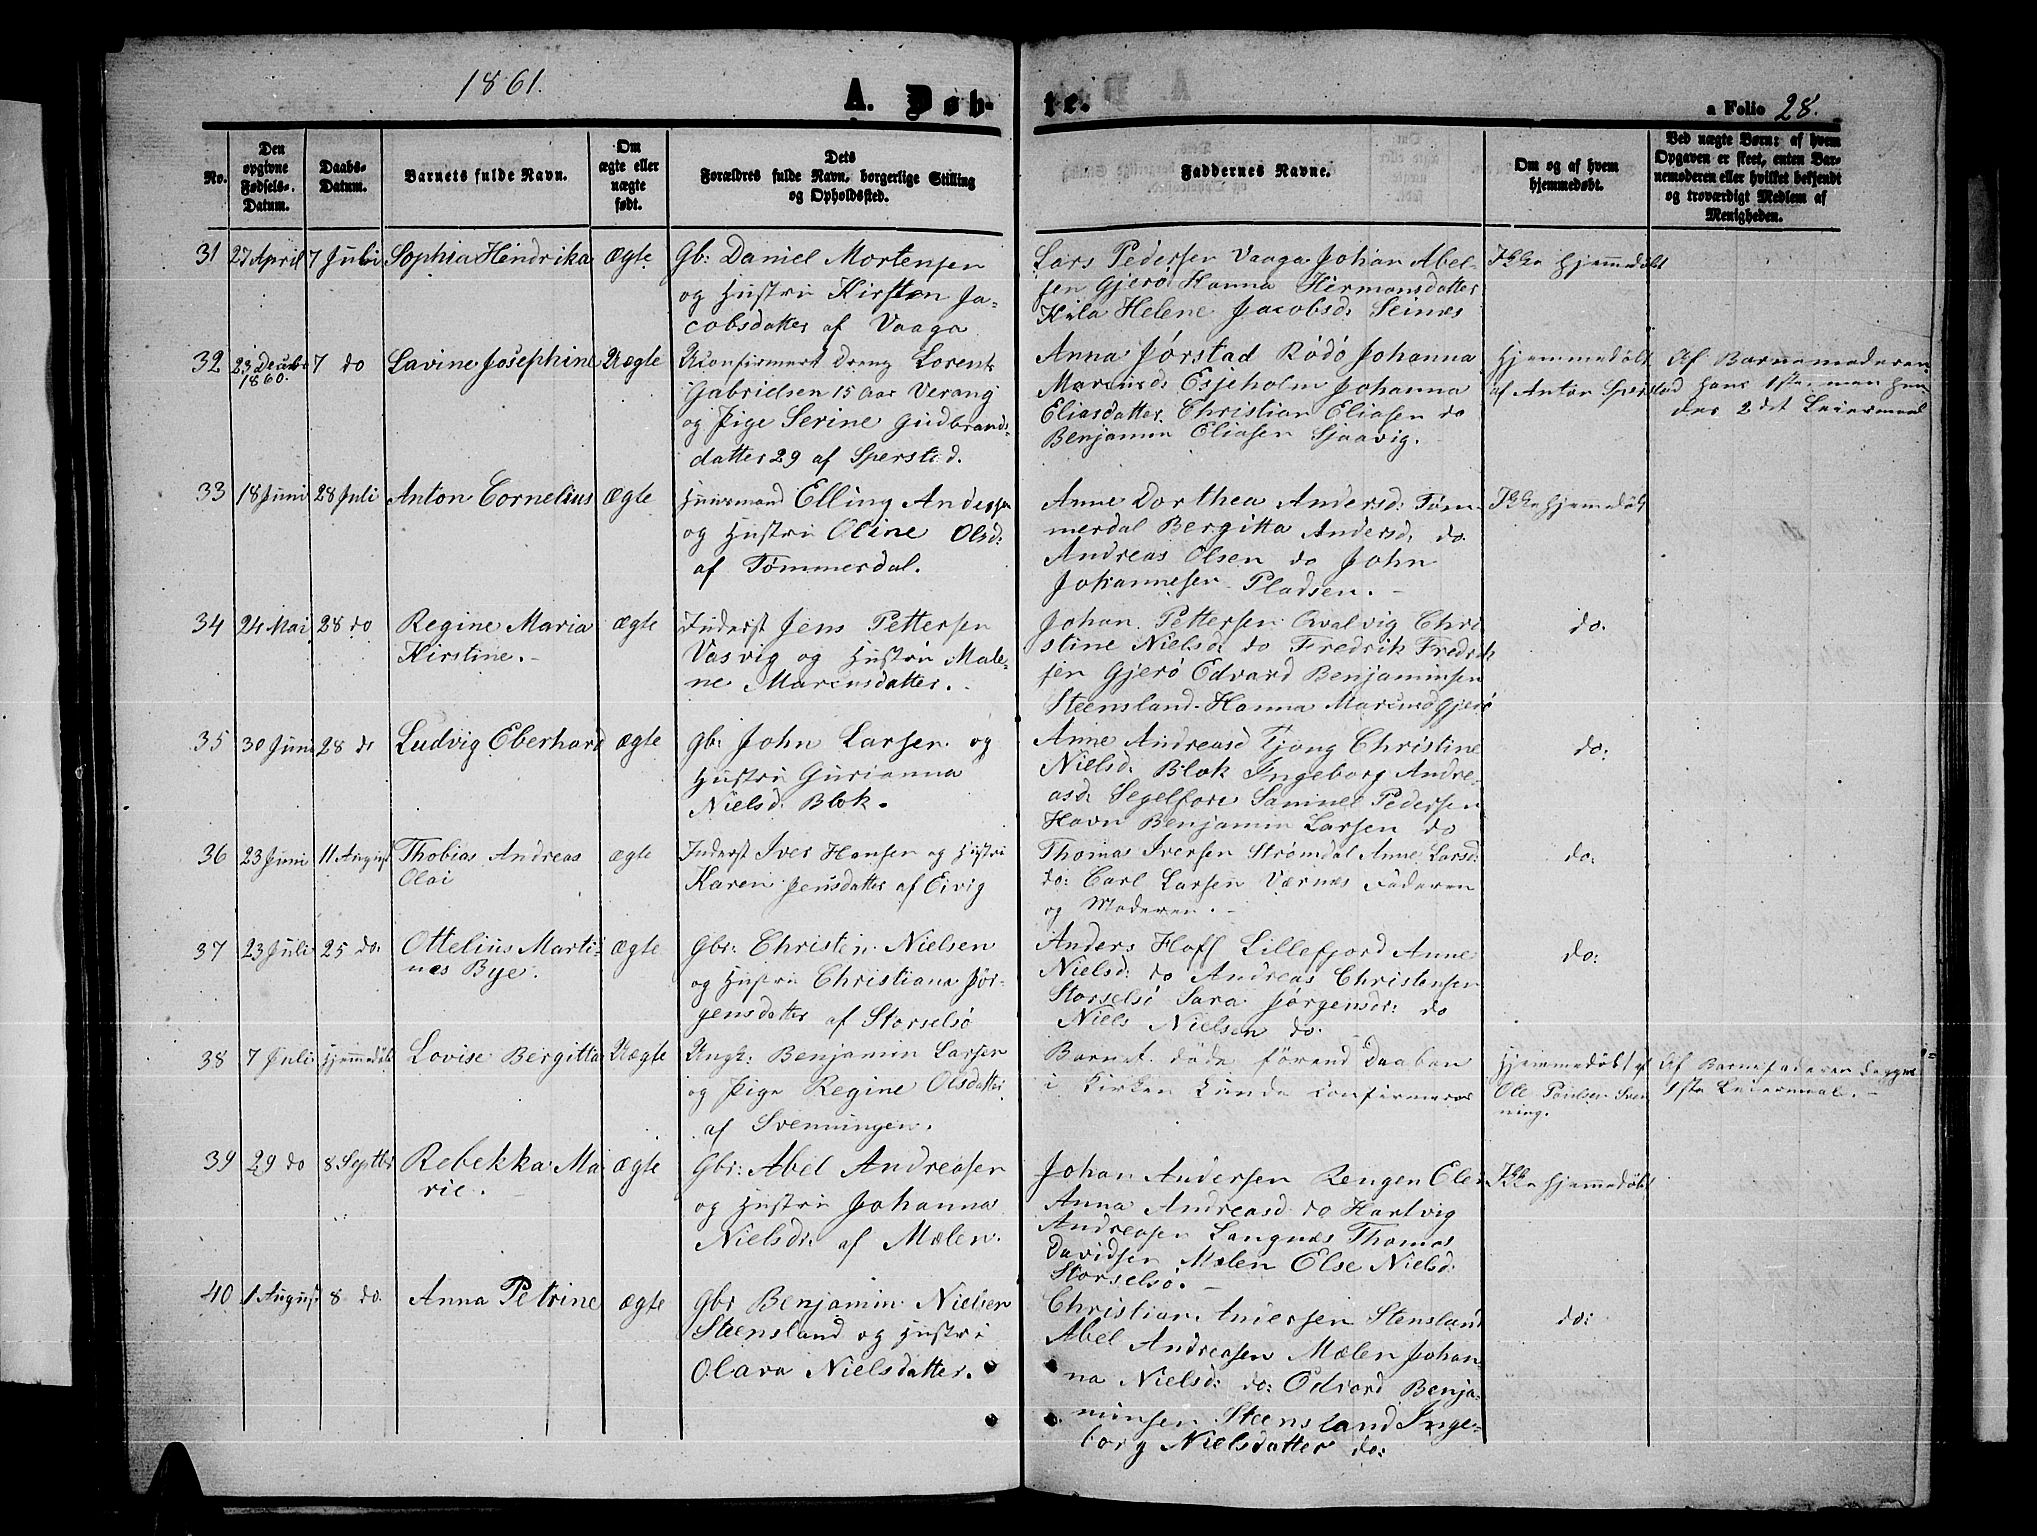 1861.
A. Døb-
te.
a Folio 28.
No.
Den
opgivne
Fødsels-
Datum.
Daabs-
Datum.
Barnets fulde Navn.
Om
ægte eller
uægte
født.
Dets
Forældres fulde Navn, borgerlige Stilling
og Opholdssted.
Faddernes Navne.
Om og af hvem
hjemmedøbt.
Ved uægte Børn: af hvem
Opgaven er skeet, enten Bar-
nemoderen eller hvilket bekjendt
og troværdigt Medlem af
Menigheden.
31
27 April
7 Juli
Sophia Hendrika
Ægte
Gb: Daniel Mortensen
og Hustru Kirsten Ja-
cobsdatter af Vaaga
Lars Pedersen Vaaga Johan Abel-
sen Gjerø Hanna Hermansdatter
Kila Helene Jacobsd: Seines
Ikke hjemmedøbt
32
23 Decemb
1860.
7 do
Lavine Josephine
Uægte
Ukonfirmert Dreng Lorents
Gabrielsen 15 Aar Verang
og Pige Serine Gudbrands-
datter 29 af Sperstad.
Anna Jørstad Rødø Johanna
Marcusd: Esjeholm Johanna
Eliasdatter Christian Eliasen do
Benjamin Eliasen Sjaavig.
Hjemmedøbt
af Anton Sperstad
Af Barnemoderen
hans 1ste men hen
des 2det Leiermaal
33
18 Juni
28 Juli
Anton Cornelius
Ægte
Huusmand Elling Andersen
og Hustru Oline Olsd:
af Tømmerdal.
Anne Dorthea Andersd: Tøm-
merdal Bergitta Andersd: do
Andreas Olsen do John
Johannesen Pladsen. -
Ikke hjemmedøbt
34
24 Mai
28 do
Regine Maria
Kirstine. -
Ægte
Inderst Jens Pettersen
Vasvig og Hustru Male-
ne Marcusdatter. -
Johan Pettersen Qvalvig Chri
stine Nielsd: do Fredrik Fredrik
sen Gjerø Edvard Benjaminsen
Steensland Hanna Marcusd Gjerø
do.
35
30 Juni
28 do
Ludvig Eberhard
Ægte
Gb: John Larsen og
Hustru Gurianna
Nielsd: Blok.
Anne Andreasd Tjong Christine
Nielsd: Blok Ingeborg Andre-
asd: Segelfore Samuel Pedersen
Havn Benjamin Larsen do
do:
36
23 Juni
11 August
Thobias Andreas
Olai
Ægte
Inderst Iver Hansen og Hustru
Karen Jensdatter af Eivig
Thomas Iversen Strømdal Anne Larsd:
do: Carl Larsen Værnes Faderen
og Moderen. -
do:
37
23 Juli
25 do.
Ottelius Marti-
nus Bye.
Ægte
Gbr: Christen Nielsen
og Hustru Christiana Jør-
gensdatter af Storselsø
Anders Hoff Lillefjord Anne
Nielsd: do Andreas Christensen
Storselsø Sara Jørgensdr: do
Niels Nielsen do.
do:
38
7 Juli
Hjemmedøbt
Lovise Bergitta
Uægte
Ungk: Benjamin Larsen
og Pige Regine Olsdatter
af Svenningen.
Barnet døde førend Daaben
i Kirken Kunde Confirmeres
Hjemmedøbt af
Ole Paulsen Sven
ning.
Af Barnefaderen begges
1ste Leiermaal. -
39
29 do
8 Septbr
Rebekka Ma
rie. -
Ægte
Gbr: Abel Andreasen
og Hustru Johanna
Nielsdr: af Mælen.
Johan Andersen Rengen Elen
Anna Andreasd do Hartvig
Andreasen Langnæs Thomas
Davidsen Mælen Else Nielsd:
Storselsø. -
Ikke hjemmedøbt
40
1 August
8 do.
Anna Petrine
Ægte
Gbr Benjamin Nielsen
Steensland og Hustru
Olava Nielsdatter.
Christian Andersen Stensland
Abel Andreasen Mælen Johan-
na Nielsd: do: Edvard Benja-
minsen Steensland Inge-
borg Nielsdatter do:
do: